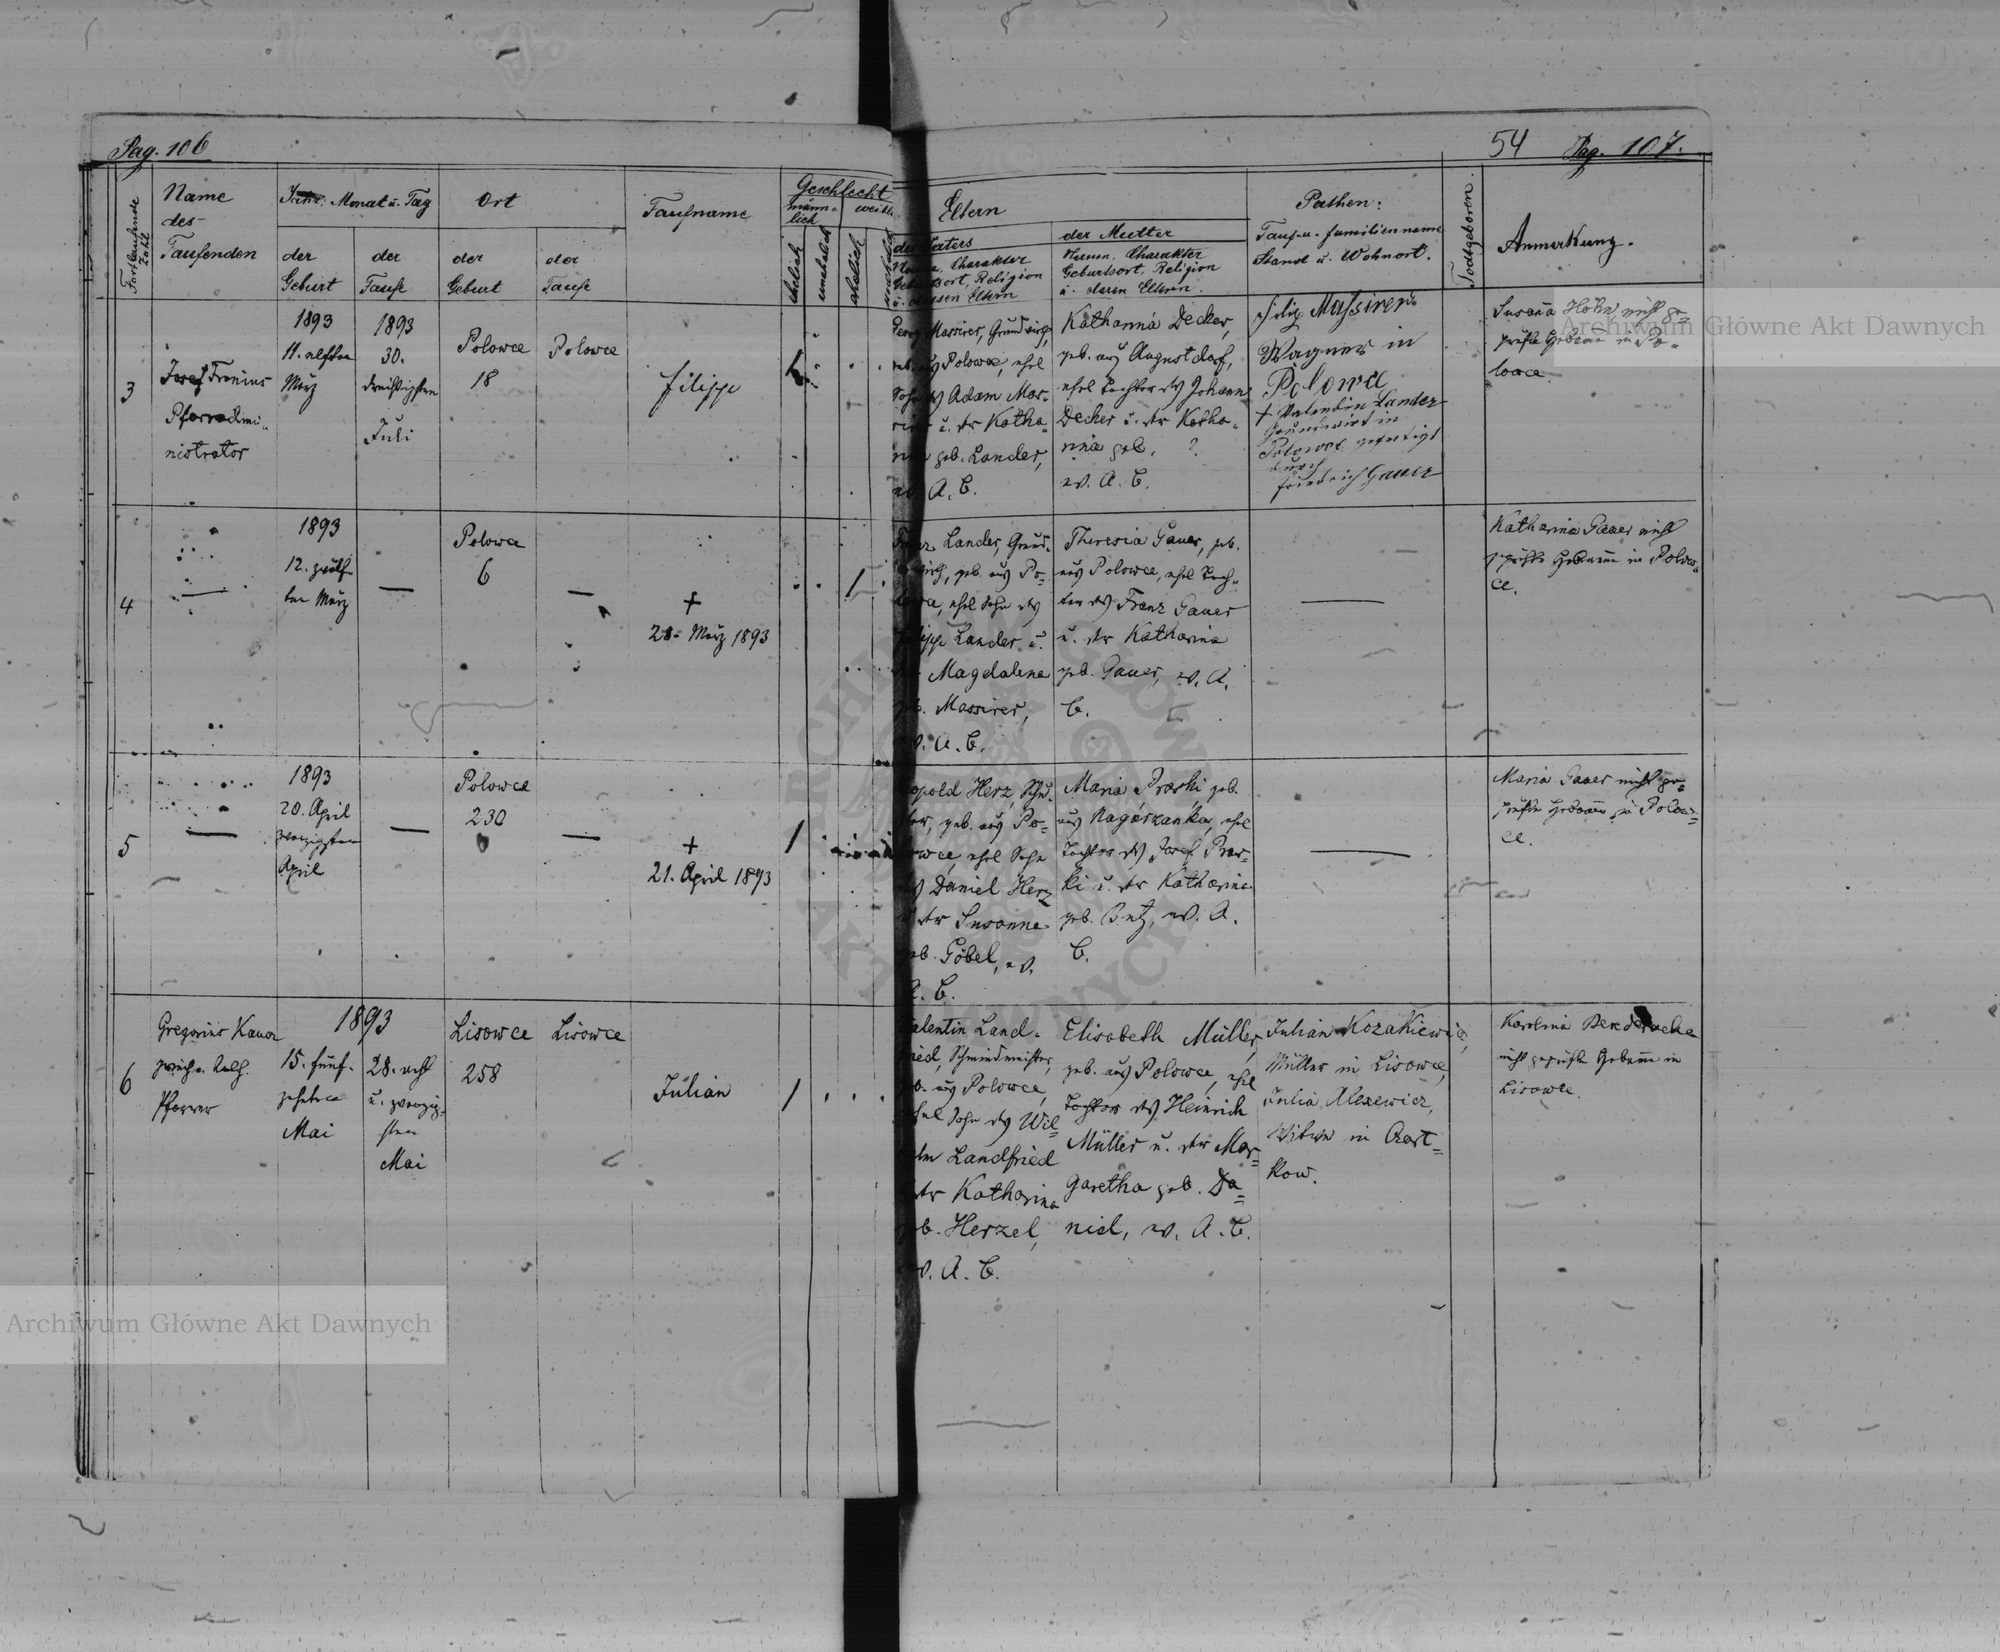 Pag. 106
54 Pag. 107.
Fortlaufende Zahl
Name
des
Taufenden
Jahr, Monat u. Tag
der
Geburt
der
Taufe
Ort
der
Geburt
der
Taufe
Taufname
Geschlecht
männ=
lich
weibl
ehelich
unehelich
ehelich
Eltern
des Vaters
Charakter
Religion
Eltern
der Mutter
Namen, Charakter
Geburtsort, Religion
u. deren Eltern.
Pathen:
Tauf- u. Familienname
Stand u. Wohnort.
Todtgeboren.
Anmerkung.
3
Josef Fronius
Pfarradmi=
nistrator
1893
11. elften
März
1893
30.
dreißigsten
Juli
Polowce
18
Polowce
Filipp
1
Georg Massirer, Grundwirth,
geb. aus Polowce, ehel
Sohn des Adam Mas=
sirer u. der Katha=
rina geb. Lander,
ev. A. C.
Katharina Decker,
geb. aus Augustdorf,
ehel Tochter des Johann
Decker u. der Katha=
rina geb. ?
ev. A. C.
Filip Massirer
Wagner in
Polowce
+ Valentin Lander
Grundwirt in
Polowce gefertigt
durch
Friedrich Gauer
Susana Höhn nicht ge=
prüfte Hebamme in Po=
lowce.
4
1893
12. zwölf=
ten März
—
Polowce
6
—
+
28. März 1893
1
Franz Lander, Grund=
wirth, geb. aus Po=
lowce, ehel Sohn des
Filipp Lander u.
der Magdalena
geb. Massirer,
ev. A. C.
Theresia Gauer, geb.
aus Polowce, ehel Toch=
ter des Franz Gauer
u. der Katharina
geb. Gauer, ev. A.
C.
—
Katharina Gauer nicht
geprüfte Hebamme in Polow=
ce.
5
—
1893
20. April
zwanzigsten
April
—
Polowce
230
—
+
21. April 1893
1
Leopold Herz,
geb. aus Po=
lowce, ehel Sohn
des Daniel Herz
u. der Susanna
geb. Göbel, ev.
A. C.
Maria geb.
aus Nagórzanka, ehel
Tochter des Josef
ki u. der Katharina
geb. Butz, ev. A.
C.
—
Maria Gauer nicht ge=
prüfte Hebamme in Polow=
ce.
6
Gregorius
griech. kath.
Pfarrer
1893
15. fünf=
zehnten
Mai
28. acht
u. zwanzig=
sten
Mai
Lisowce
258
Lisowce
Julian
1
Valentin Land=
fried, Schmiedmeister,
geb. aus Polowce,
ehel Sohn des Wil=
helm Landfried
der Katharina
geb. Herzel,
ev. A. C.
Elisabeth Müller,
geb. aus Polowce, ehel
Tochter des Heinrich
Müller u. der Mar=
garetha geb. Da=
niel, ev. A. C.
Julian Kozakiewicz,
Müller in Lisowce,
Julia Alexewicz,
Witwe in Czort=
kow.
Karolina
nicht geprüfte Hebamme in
Lisowce.
Archiwum Główne Akt Dawnych
Archiwum Główne Akt Dawnych